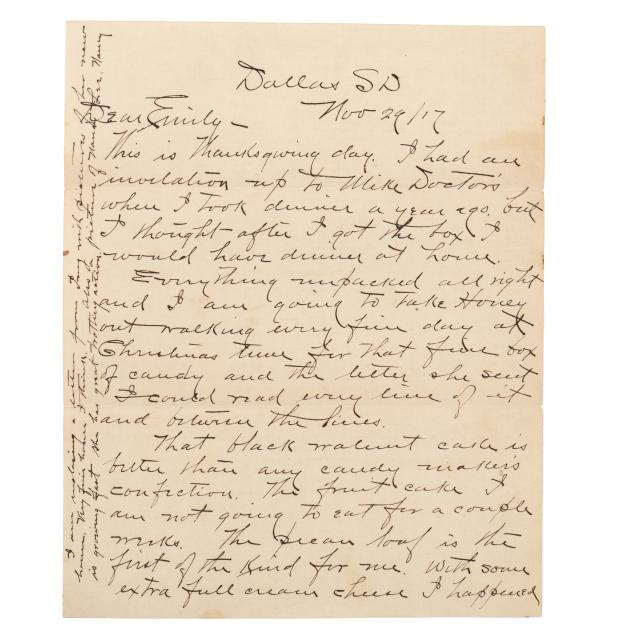 Dallas SD
Nov 29/17
Dear Emily -
This is Thanksgiving day. I had an
invitation up to Mike Doctor's
where I took dinner a year ago. but
I thought after I got the box I
would have dinner at home.
Everything unpacked all right
and I am going to take Honey
out walking every fine day at
Christmas time for that fine box
of candy and the letter she sent
I could read every line of it
and between the lines.
That black walnut cake is
better than any candy maker's
confiction. The fruit cake I
am not going to eat for a couple
weeks. The pecan loaf is the
first of the kind for me. With some
extra full cream cheese I happened
I am enclosing a letter from with pictures of her new
home. Very fine home I think, also a picture of Nancy
is growing fast she has great action.